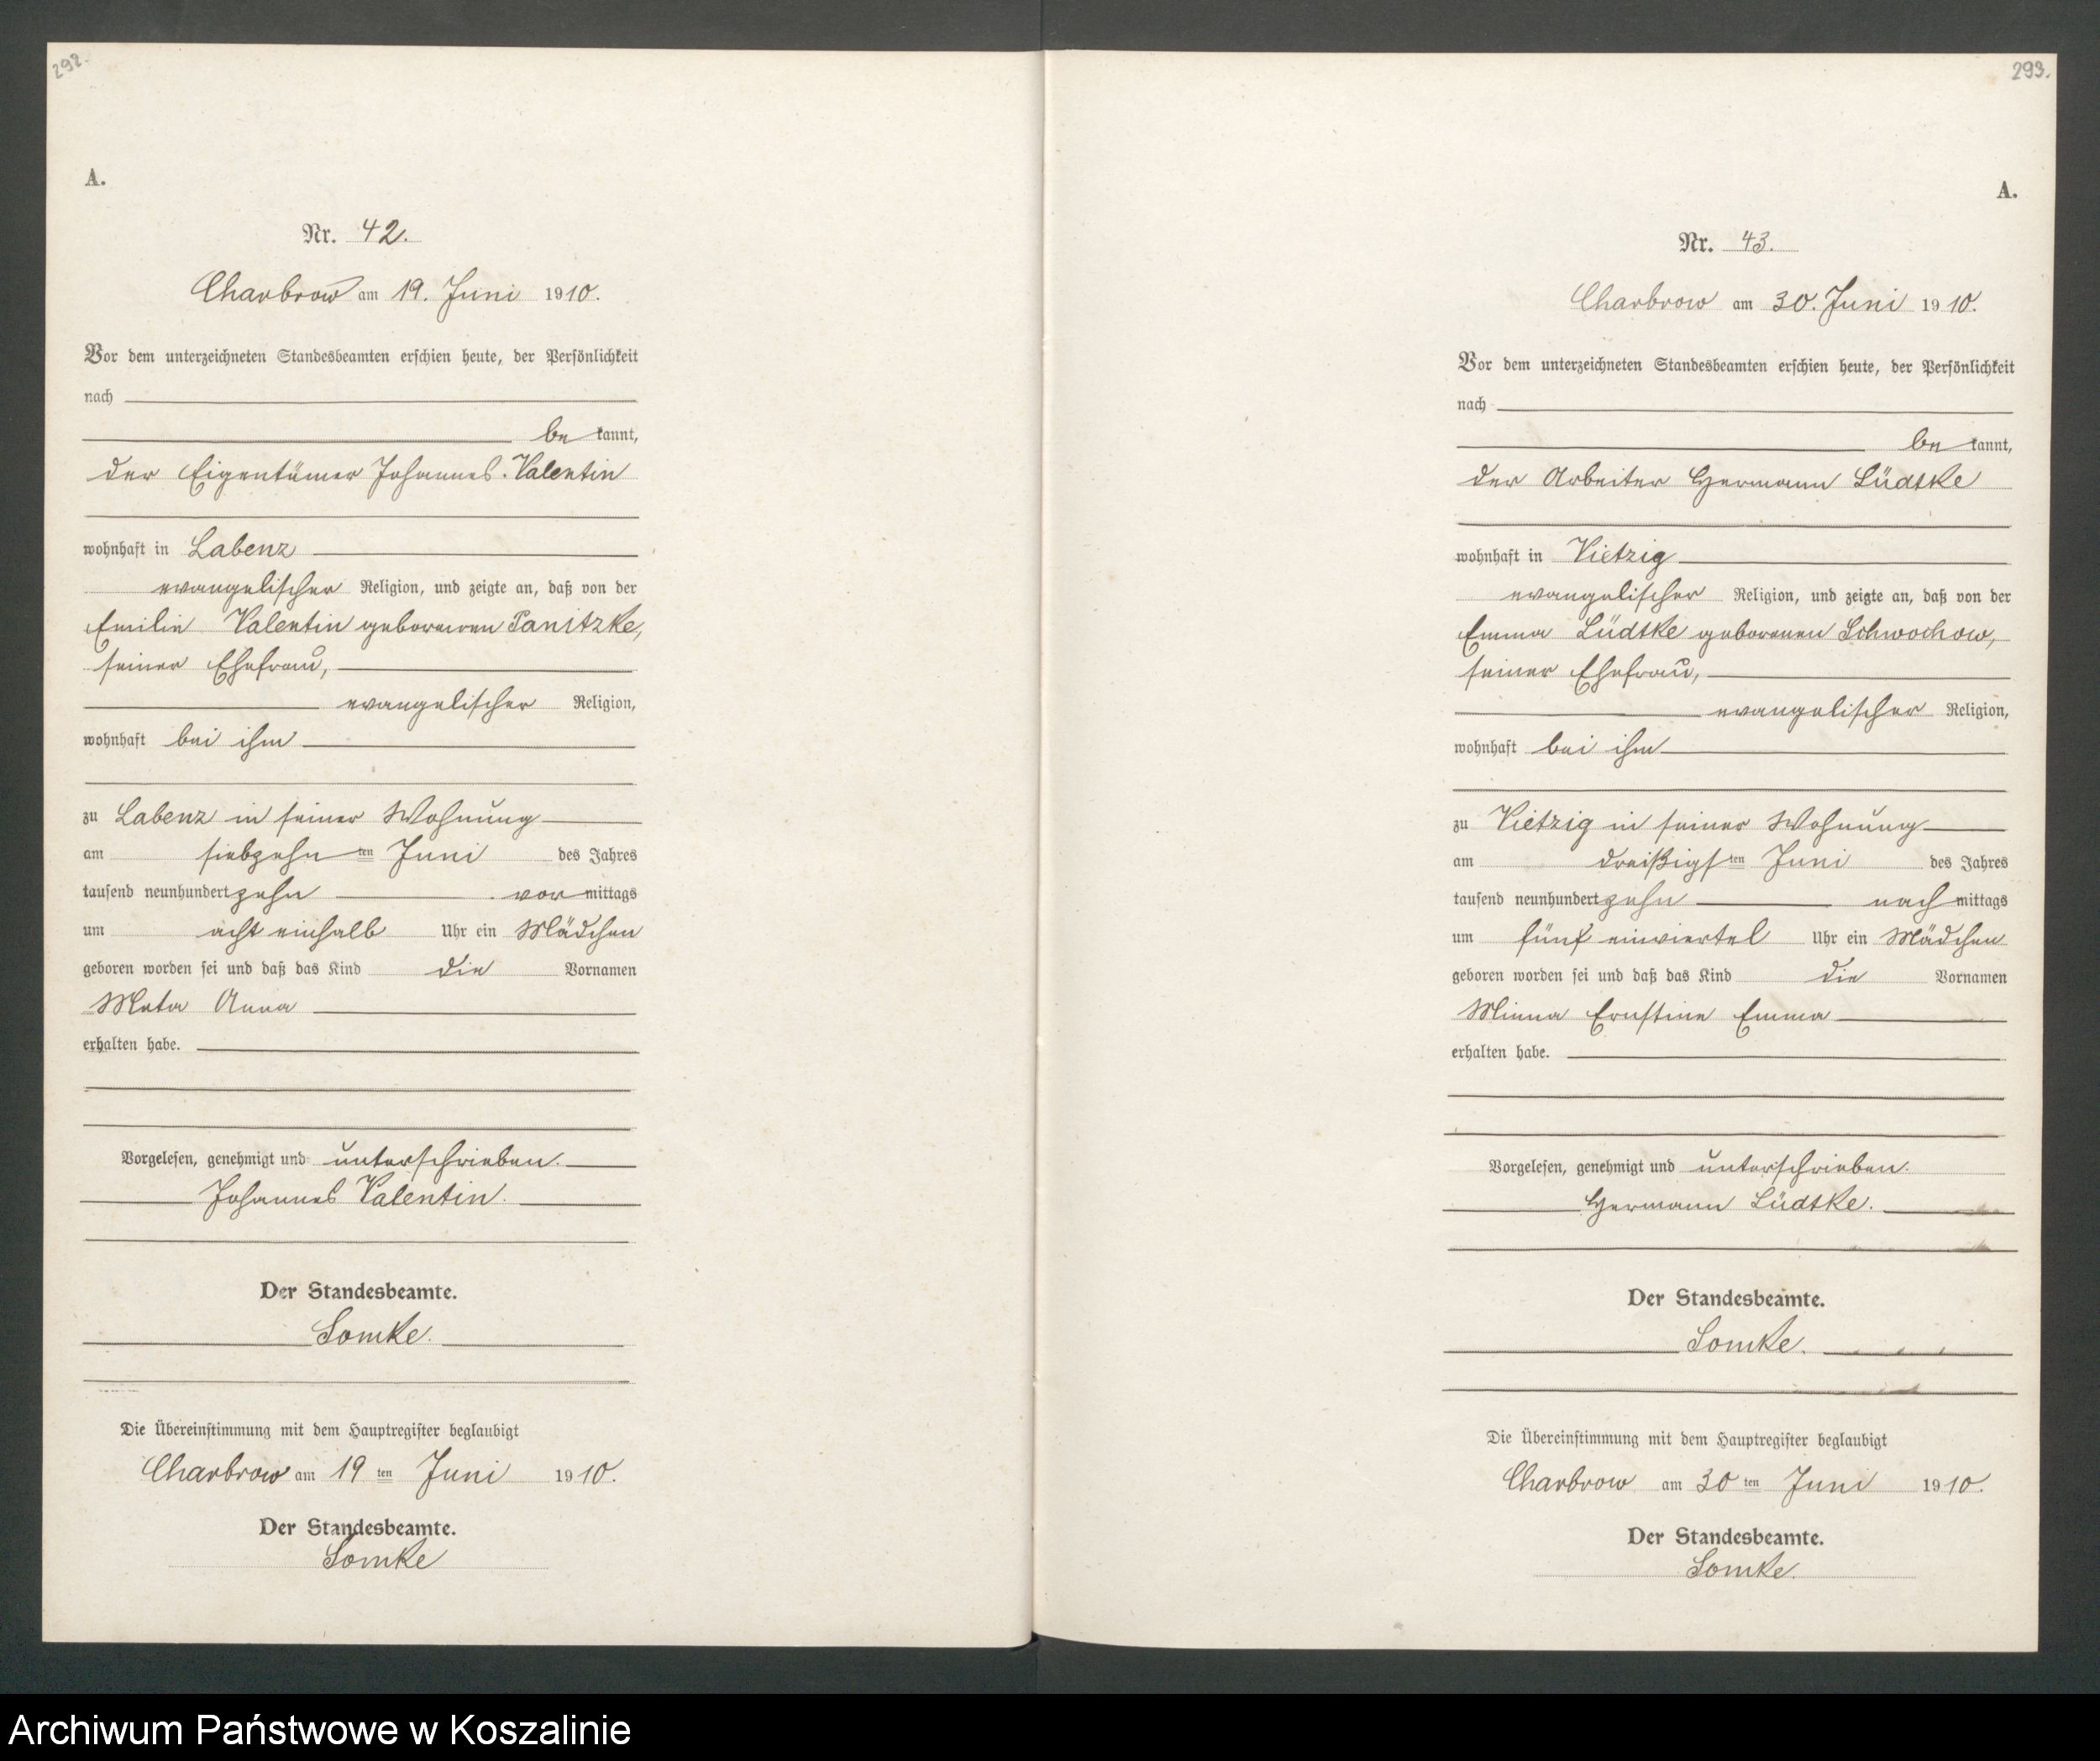 292.
A.
Nr. 42.
Charbrow am 19. Juni 1910.
Vor dem unterzeichneten Standesbeamten erschien heute, der Persönlichkeit
nach
be kannt,
der Eigentümer Johannes Valentin
wohnhaft in Labenz
evangelischer Religion, und zeigte an, daß von der
Emilie Valentin geborenen Panitzke,
seiner Ehefrau,
evangelischer Religion,
wohnhaft bei ihm
zu Labenz in seiner Wohnung
am siebzehn ten Juni des Jahres
tausend neunhundert zehn vor mittags
um acht einhalb Uhr ein Mädchen
geboren worden sei und daß das Kind die Vornamen
Meta Anna
erhalten habe.
Vorgelesen, genehmigt und unterschrieben.
Johannes Valentin.
Der Standesbeamte.
Lomke.
Die Übereinstimmung mit dem Hauptregister beglaubigt
Charbrow am 19 ten Juni 1910.
Der Standesbeamte.
Lomke
293.
A.
Nr. 43.
Charbrow am 30. Juni 1910.
Vor dem unterzeichneten Standesbeamten erschien heute, der Persönlichkeit
nach
be kannt,
der Arbeiter Hermann Lüdtke
wohnhaft in Vietzig
evangelischer Religion, und zeigte an, daß von der
Emma Lüdtke geborenen Schwochow,
seiner Ehefrau,
evangelischer Religion,
wohnhaft bei ihm
zu Vietzig in seiner Wohnung
am dreißigs ten Juni des Jahres
tausend neunhundert zehn nach mittags
um fünf einviertel Uhr ein Mädchen
geboren worden sei und daß das Kind die Vornamen
Minna Ernstine Emma
erhalten habe.
Vorgelesen, genehmigt und unterschrieben.
Hermann Lüdtke.
Der Standesbeamte.
Lomke.
Die Übereinstimmung mit dem Hauptregister beglaubigt
Charbrow am 30 ten Juni 1910.
Der Standesbeamte.
Lomke.
Archiwum Państwowe w Koszalinie